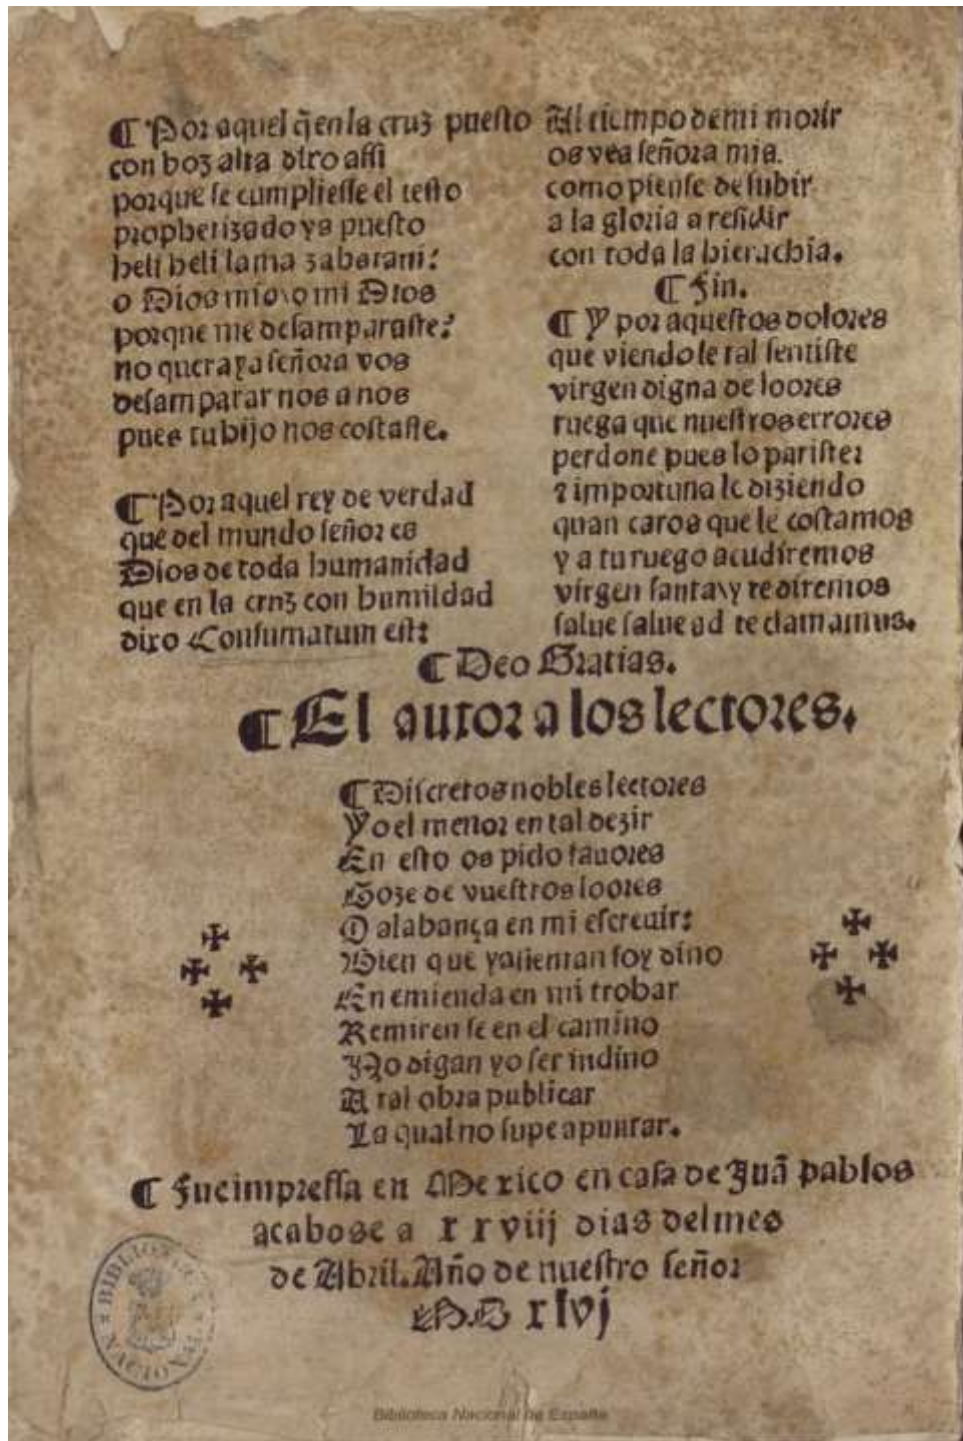 ¶ Por aquel q̃ en la cruz puesto
con boz alta dixo assi
porque se cumpliesse el testo
prophetizado ya puesto
heli heli lama zabatani?
o Dios mio\o mi Dios
porque me desamparaste?
no querays señora vos
desamparar nos a nos
pues tu hijo nos costaste.
¶ Por aquel rey de verdad
que del mundo señor es
Dios de toda humanidad
que en la cruz con humildad
dixo Consumatum est:
Al tiempo de mi morir
os vea señora mia.
como piense de subir
a la gloria a residir
con toda la hierachia.
¶ Fin.
¶ Y por aquestos dolores
que viendo le tal sentiste
virgen digna de loores
ruega que nuestros errores
perdone pues lo pariste:
⁊ importuna le diziendo
quan caros que le costamos
y a tu ruego acudiremos
virgen santa\y te diremos
salue salue ad te clamamus.
¶ Deo Gratias.
¶ El autor a los lectores.
¶ Discretos nobles lectores
Yo el menor en tal dezir
En esto os pido fauores
Goze de vuestros loores
O alabança en mi escreuir:
Bien que soy dino
En emienda en mi trobar
Remiren se en el camino
No digan yo ser indino
A tal obra publicar
La qual no supe apuntar.
¶ Fue impressa en Mexico en casa de Juã pablos
acabose a xxviij dias del mes
de Abril. Año de nuestro señor
MD xlvj
BIBLIOTECA NACIONAL
Biblioteca Nacional de España